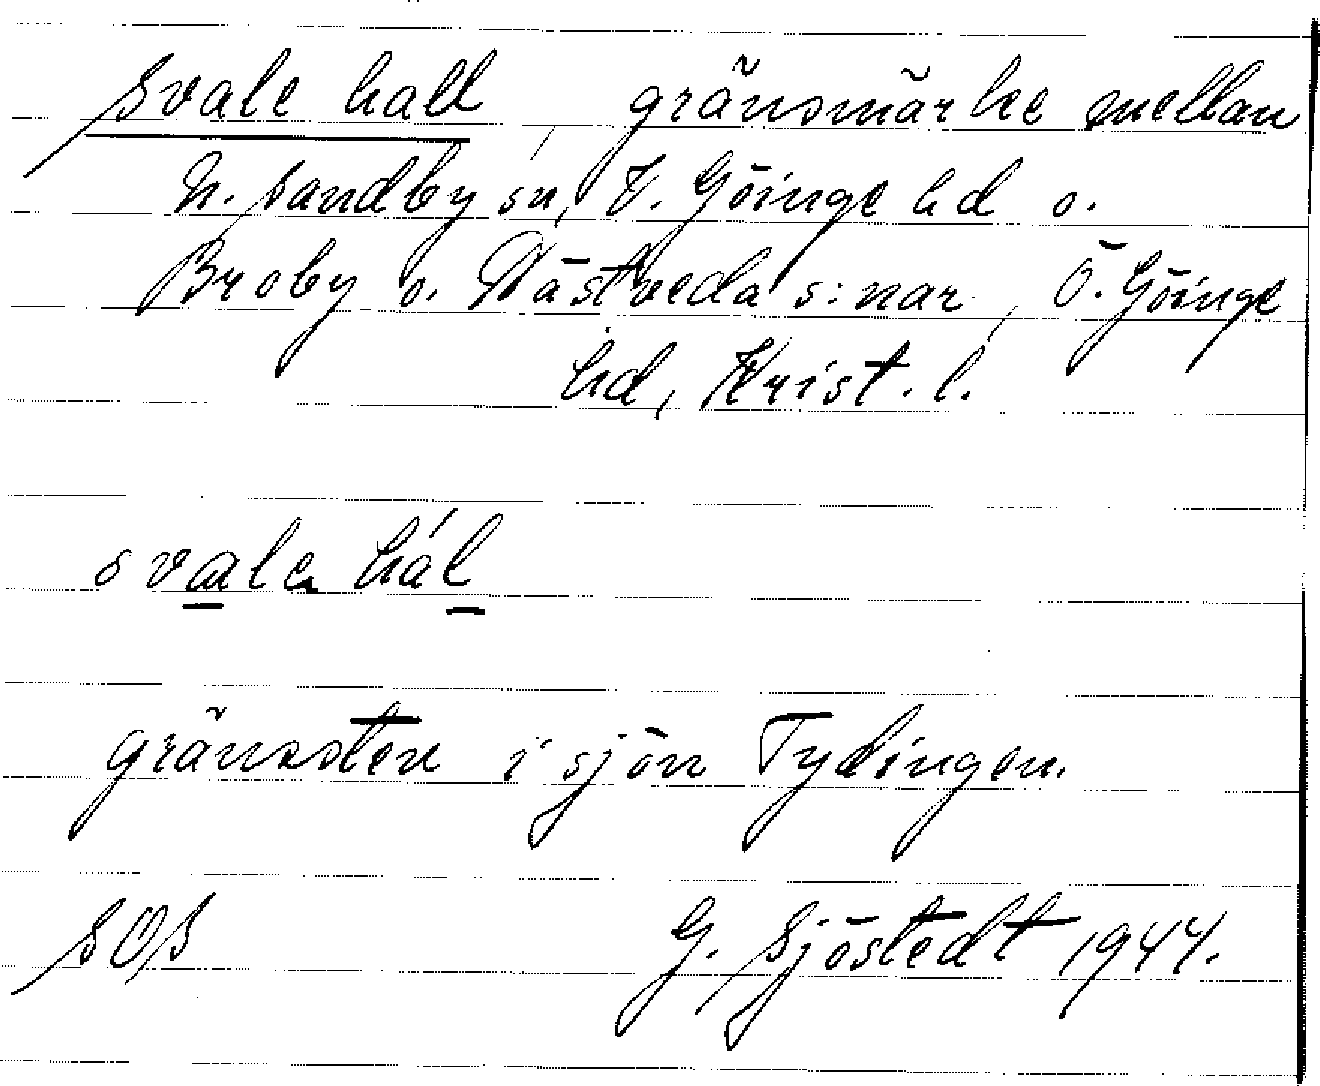 Svale hall, gränsmärke mellan
N. Sandby sn, V. Göinge hd o.
Broby o. Västveda s:nar, Ö. Göinge
hd, Krist. l.
svale hál
gränssten i sjön Tydingen.
SOS G. Sjöstedt 1944.